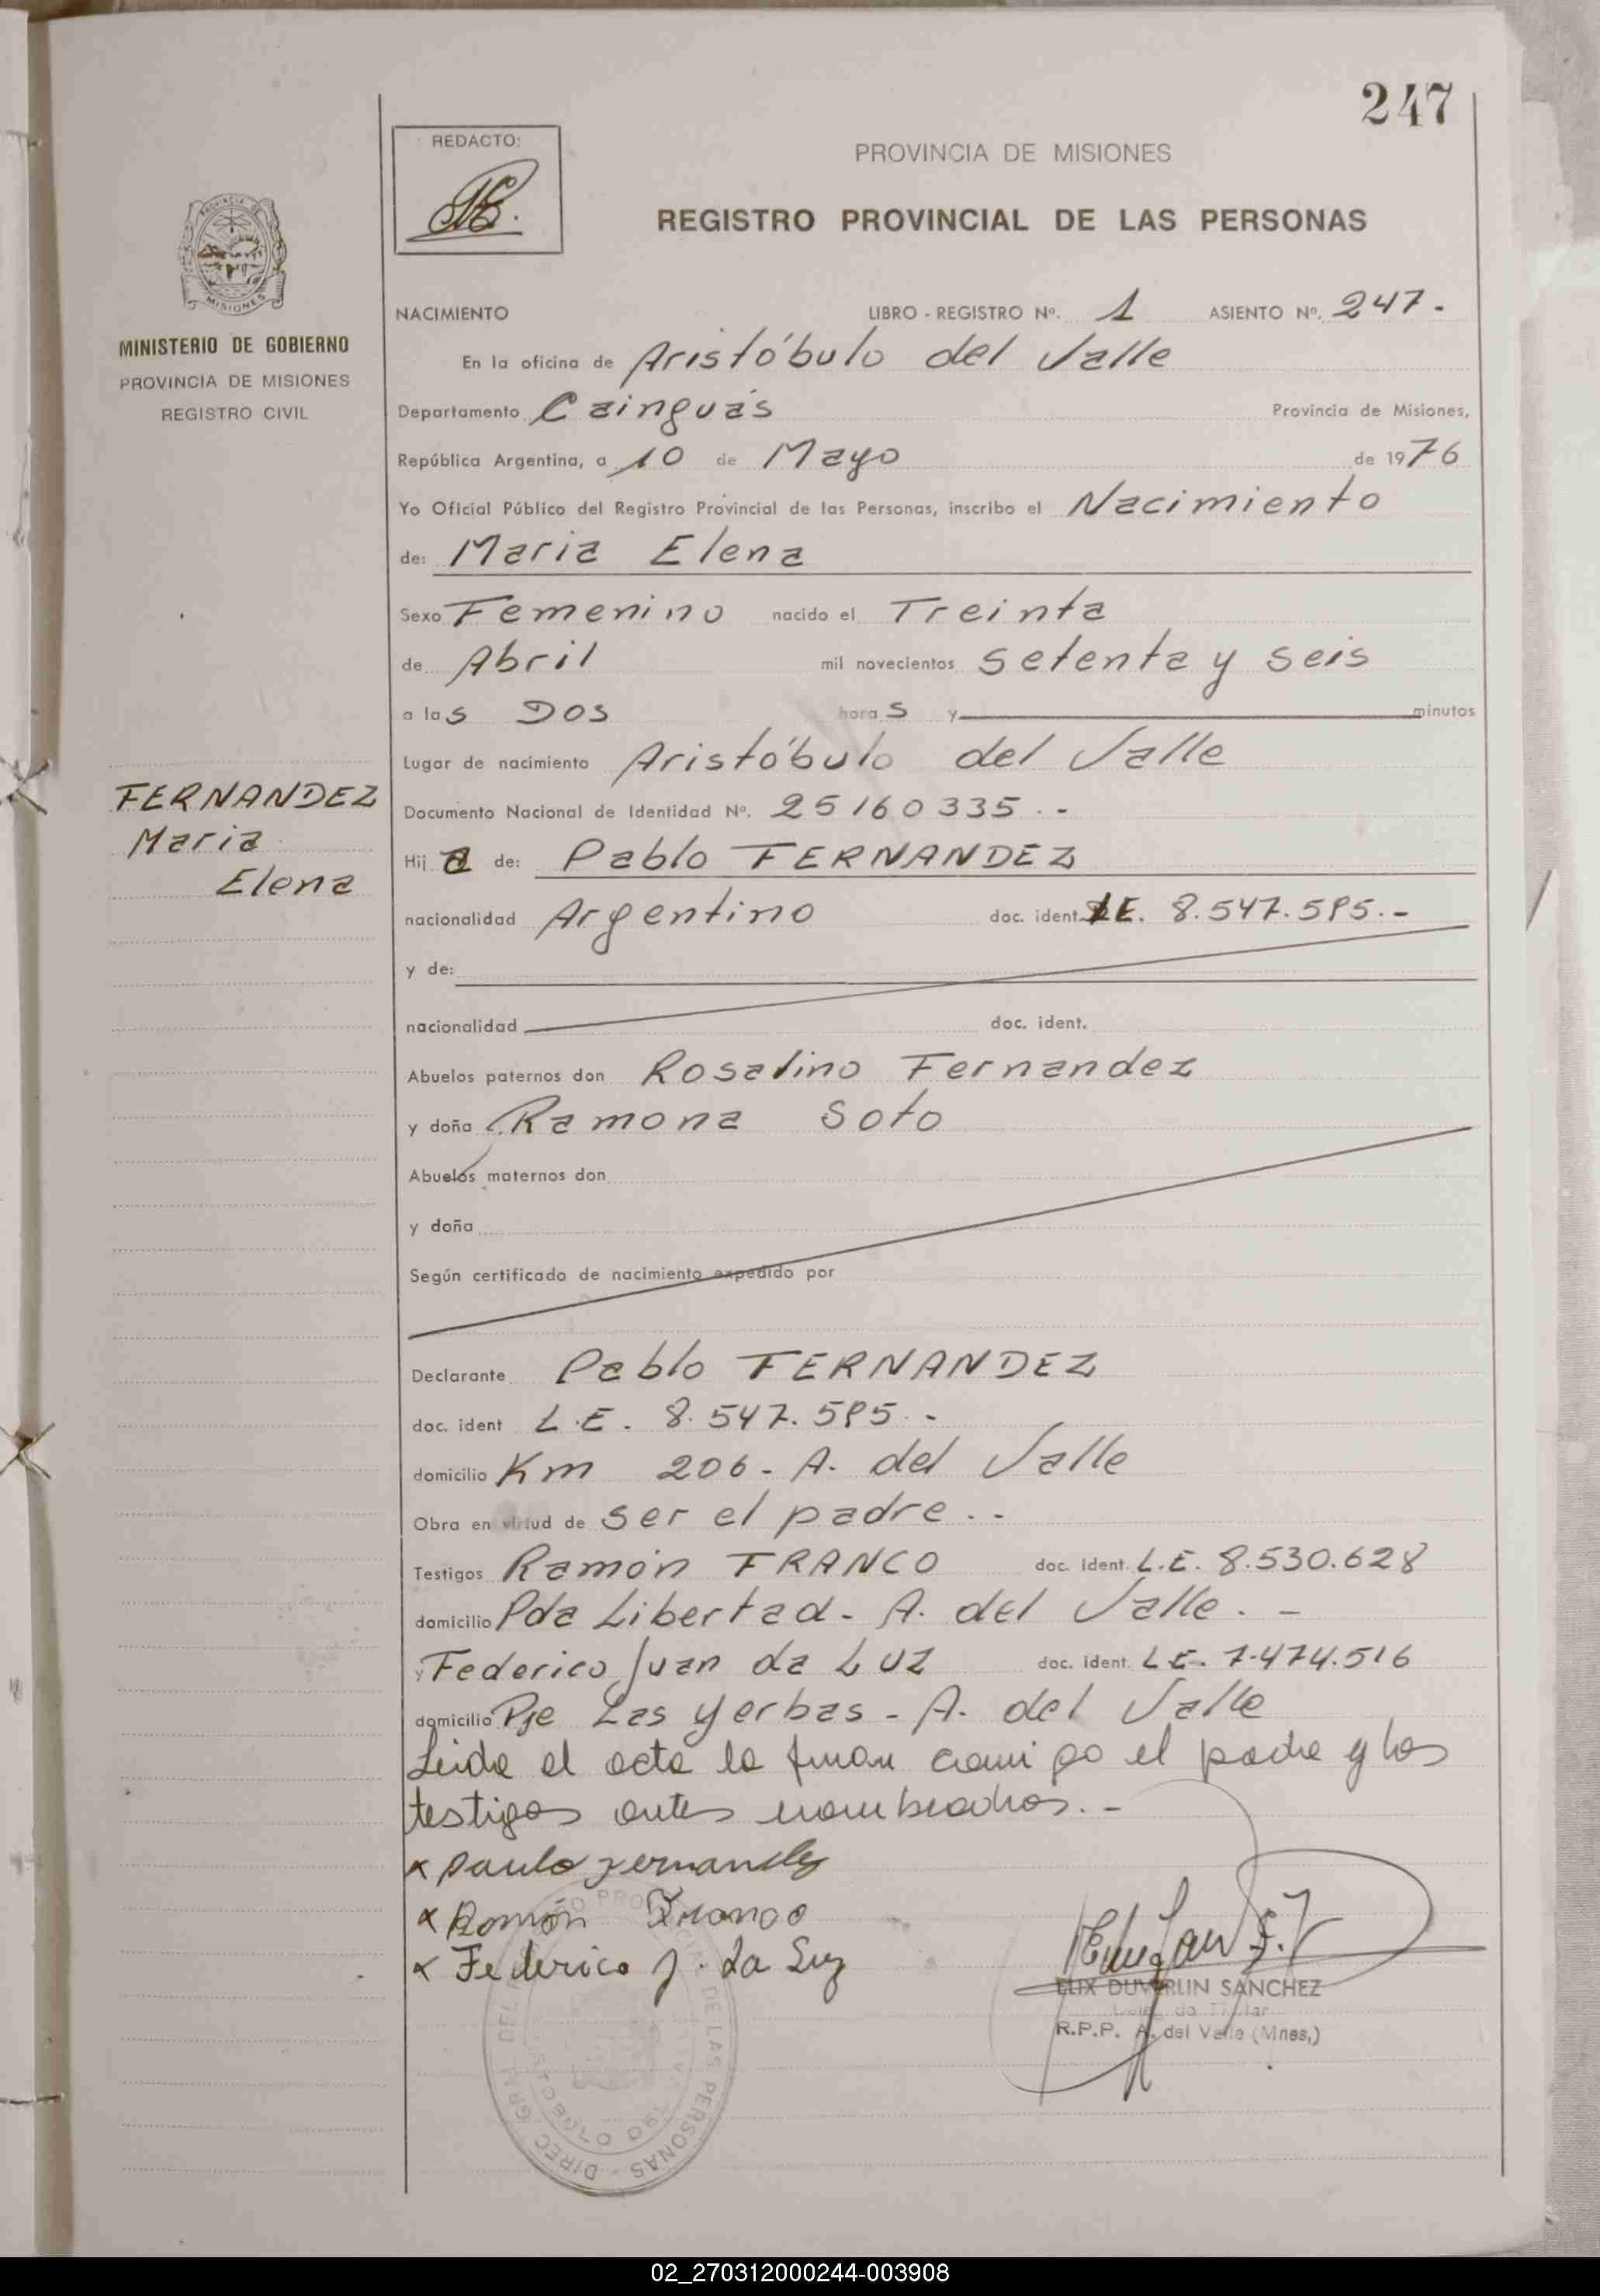 247
REDACTO:
PROVINCIA DE MISIONES
REGISTRO PROVINCIAL DE LAS PERSONAS
MISIONES
MINISTERIO DE GOBIERNO
PROVINCIA DE MISIONES
REGISTRO CIVIL
NACIMIENTO LIBRO - REGISTRO Nº. 1 ASIENTO Nº. 247.-
En la oficina de Aristóbulo del Valle
Departamento Cainguás Provincia de Misiones,
República Argentina, a 10 de Mayo de 1976
Yo Oficial Público del Registro Provincial de las Personas, inscribo el Nacimiento
de: Maria Elena
Sexo Femenino nacido el Treinta
de Abril mil novecientos setenta y seis
a las Dos horas y minutos
Lugar de nacimiento Aristóbulo del Valle
FERNANDEZ
Maria
Elena
Documento Nacional de Identidad Nº. 25160335.-
Hija de: Pablo FERNANDEZ
nacionalidad Argentino doc. ident. L.E. 8.547.595.-
y de:
nacionalidad doc. ident.
Abuelos paternos don Rosalino Fernandez
y doña Ramona Soto
Abuelos maternos don
y doña
Según certificado de nacimiento expedido por
Declarante Pablo FERNANDEZ
doc. ident L.E. 8.547.595.-
domicilio Km 206 - A. del Valle
Obra en virtud de ser el padre.-
Testigos Ramón FRANCO doc. ident. L.E. 8.530.628
domicilio Pda Libertad - A. del Valle.-
y Federico Juan da LUZ doc. ident. L.E. 7.474.516
domicilio Pje Las Yerbas - A. del Valle
Leida el acta la firman conmigo el padre y los
testigos antes nombrados.-
x Paulo Fernandes
x Ramón Franco
x Federico J. da Luz
ELIX DUVERLIN SANCHEZ
Delegado Titular
R.P.P. A. del Valle (Mnes.)
02_270312000244-003908